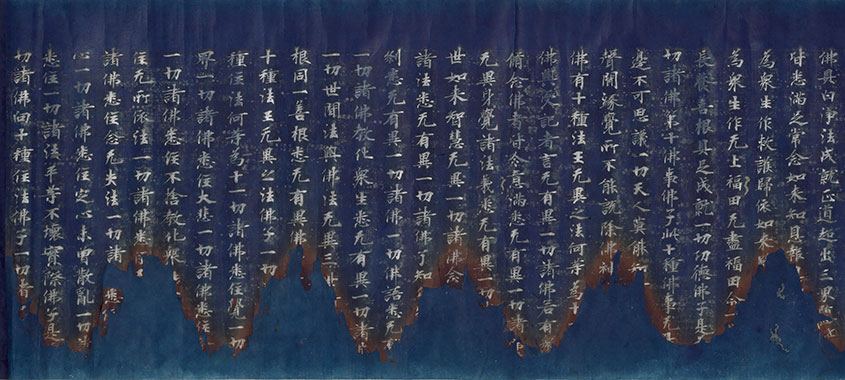 佛具白淨法成就心道超出三界
皆悉滿之常念如來知見報
為衆生作救護歸依如來
為衆生作无上福田无盡福田令一
長養善根具足成就一切功德佛子是
切諸佛第十佛事佛子此十種佛事无
邊不可思議一切天人莫能知
聲聞緣覺所不能說除佛神
佛有十種法王无異之法何等為十
佛與人記者言无有異一切諸佛若有
脩念佛者皆令意滿悉无有異一切諸
无異身覺諸法義悉无有異一切
世如來智慧无異一切諸佛念
諸法悉无有異一切諸佛了知
刹悉无有異一切諸佛語悉无有
一切諸佛教化衆生悉无有異一切諸
一切世間法與佛法无異三
根同一善根悉无有異佛
十種法王无異之法佛子一切
種住法何等為十一切諸佛悉住覺一切
界一切諸佛悉住大悲一切諸佛悉住
一切諸佛悉住不捨教化衆
住无所依法一切諸佛悉
諸佛悉住念无失法一切諸 悉
心一切諸佛悉住定心未曾散亂一切
悉住一切諸法平等不壞實際佛子是
切諸佛同十種住法佛子一切諸